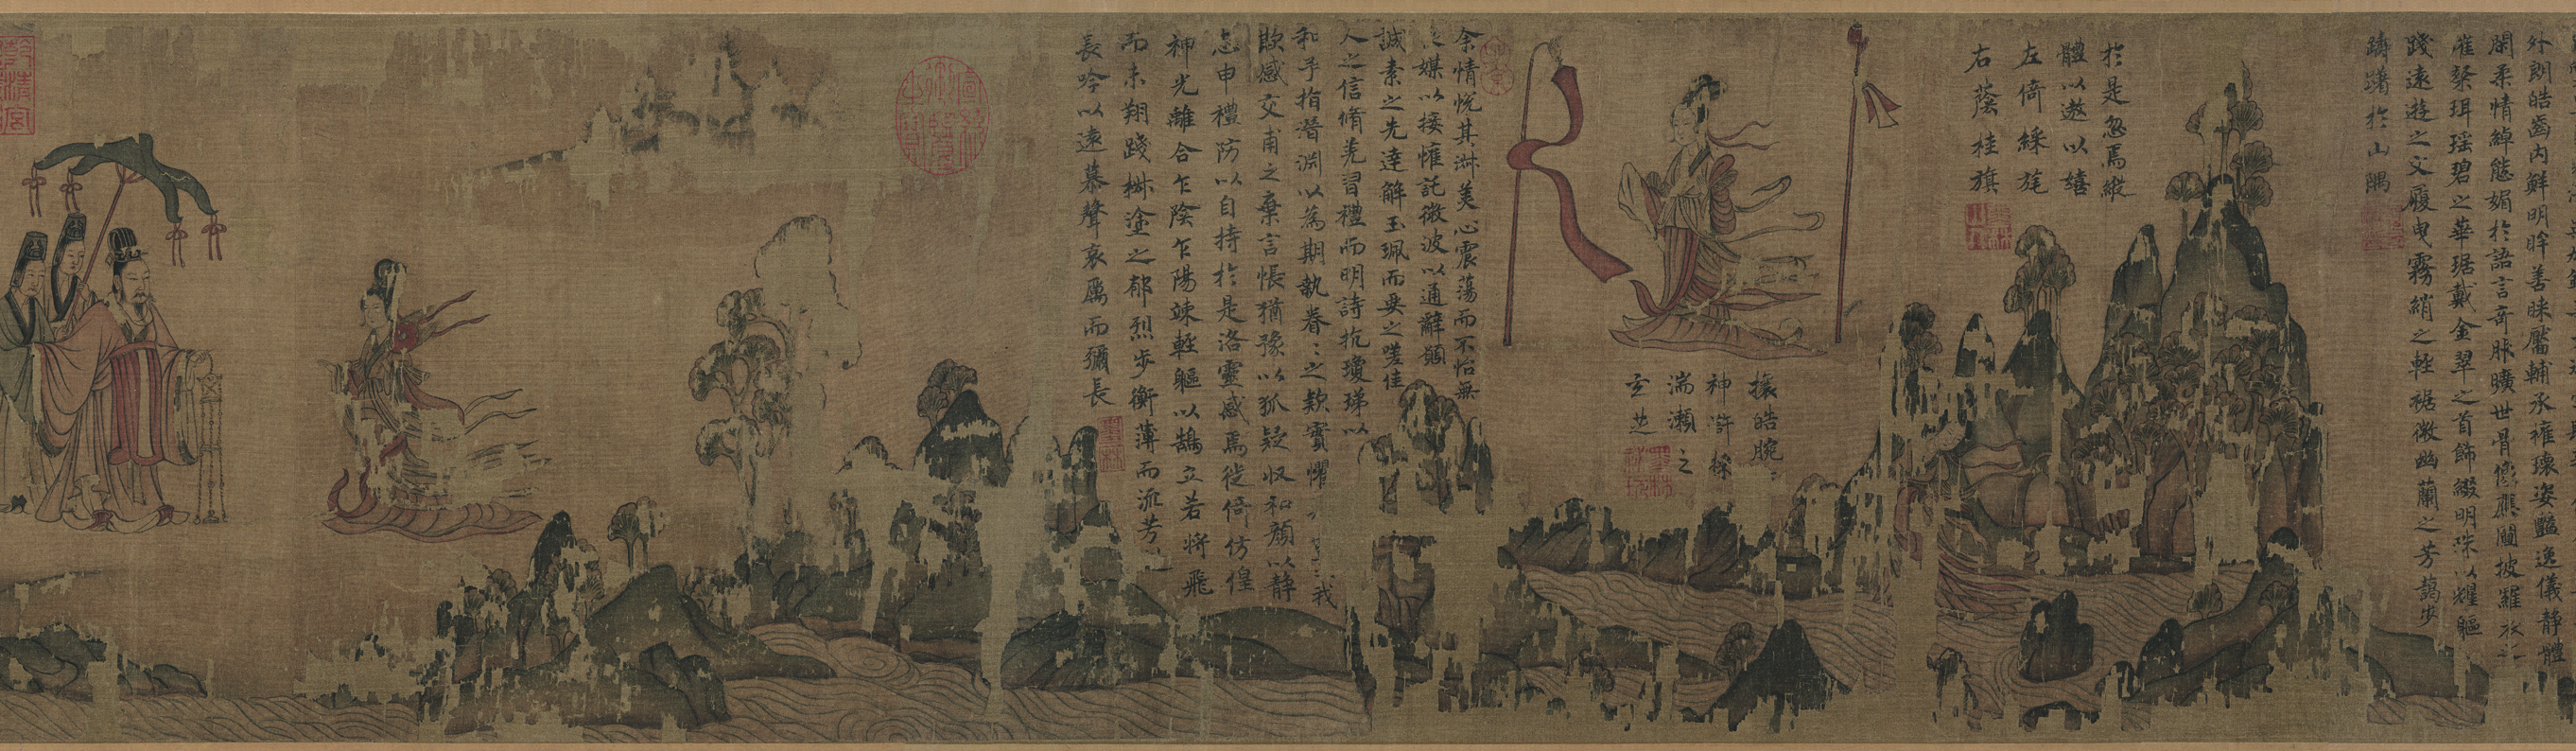 外朗皓齒内鮮明眸善睞靨輔承權瓌姿豔逸儀静體
閑柔情綽態媚於語言奇服曠世骨像應圖披羅衣
璀粲珥瑶碧之華琚戴金翠之首飾綴明珠以耀軀
踐遠遊之文履曳霧綃之輕裾微幽蘭之芳藹步
躊躇於山隅
於是忽焉縱
體以遨以嬉
左倚綵旄
右蔭桂旗
攘皓腕
神滸採
湍瀨之
玄芝
余情悦其淑美心震蕩而不怡無
良媒以接懽託微波以通辭願
誠素之先達解玉珮而要之嗟佳
人之信脩羌習禮而明詩抗瓊珶以
和予指潛淵以為期執眷:之款實懼我
欺感交甫之棄言悵猶豫以狐疑收和顔以静
志申禮防以自持於是洛靈感焉徙倚仿偟
神光離合乍陰乍陽竦輕軀以鶴立若將飛
而未翔踐椒塗之郁烈步衡薄而流芳
長吟以遠慕聲哀厲而彌長
乾清宫